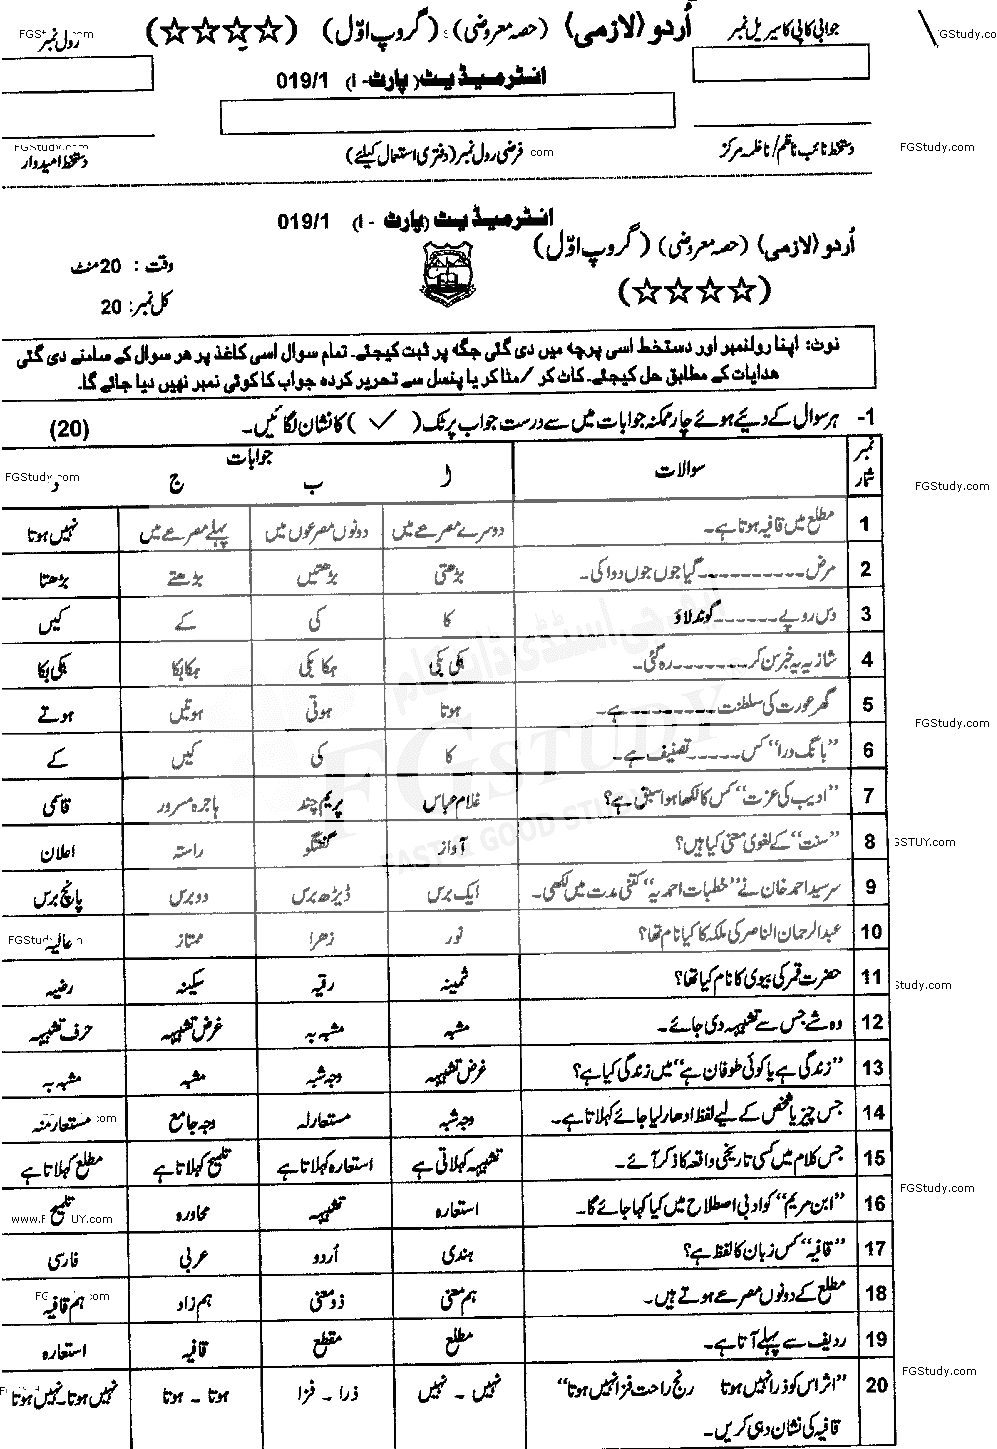 جوابی کاپی کا سیریل نمبر اُردو (لازمی) (حصہ معروضی) (گروپ اوّل) (☆☆☆☆) رول نمبر
FGStudy.com
انٹرمیڈیٹ (پارٹ - I) 019/1
دستخط نائب ناظم/ناظمہ مرکز فرضی رول نمبر (دفتری استعمال کیلئے) دستخط امیدوار
FGStudy.com
انٹرمیڈیٹ (پارٹ - I) 019/1
اُردو (لازمی) (حصہ معروضی) (گروپ اوّل)
وقت : 20 منٹ
(☆☆☆☆)
کل نمبر: 20
نوٹ: اپنا رولنمبر اور دستخط اسی پرچہ میں دی گئی جگہ پر ثبت کیجئے۔ تمام سوال اسی کاغذ پر ہر سوال کے سامنے دی گئی
ہدایات کے مطابق حل کیجئے۔ کاٹ کر / مٹا کر یا پنسل سے تحریر کردہ جواب کا کوئی نمبر نہیں دیا جائے گا۔
1- ہر سوال کے دیئے ہوئے چار ممکنہ جوابات میں سے درست جواب پر ٹک ( ✓ ) کا نشان لگائیں۔ (20)
نمبر شمار سوالات جوابات
ا ب ج د
FGStudy.com
1 مطلع میں قافیہ ہوتا ہے۔ دوسرے مصرعے میں دونوں مصرعوں میں پہلے مصرعے میں نہیں ہوتا
2 مرض ---------- گیا جوں جوں دوا کی۔ بڑھتی بڑھتیں بڑھتے بڑھتا
3 دس روپے ------ گوند لاؤ کا کی کے کیں
4 شازیہ یہ خبر سن کر -------- رہ گئی۔ ہکی بکی ہکا بکی ہکا بکا ہکی بکا
5 گھر عورت کی سلطنت --------- ہے۔ ہوتا ہوتی ہوتیں ہوتے
FGStudy.com
6 "بانگ درا" کس ----- تصنیف ہے۔ کا کی کیں کے
7 "ادیب کی عزت" کس کا لکھا ہوا سبق ہے؟ غلام عباس پریم چند ہاجرہ مسرور قاسمی
8 "سنت" کے لغوی معنی کیا ہیں؟ آواز گفتگو راستہ اعلان
9 سرسید احمد خان نے "خطبات احمدیہ" کتنی مدت میں لکھی۔ ایک برس ڈیڑھ برس دو برس پانچ برس
10 عبدالرحمان الناصر کی ملکہ کا کیا نام تھا؟ نور زھرا ممتاز عالیہ
11 حضرت قمر کی بیوی کا نام کیا تھا؟ ثمینہ رقیہ سکینہ رضیہ
12 وہ شے جس سے تشبیہہ دی جائے۔ مشبہ مشبہ بہ غرض تشبیہہ حرف تشبیہہ
13 "زندگی ہے یا کوئی طوفان ہے" میں زندگی کیا ہے؟ غرض تشبیہہ وجہ شبہ مشبہ مشبہ بہ
14 جس چیز یا شخص کے لیے لفظ ادھار لیا جائے کہلاتا ہے۔ وجہ شبہ مستعارلہ وجہ جامع مستعارمنہ
15 جس کلام میں کسی تاریخی واقعہ کا ذکر آئے۔ تشبیہہ کہلاتی ہے استعارہ کہلاتا ہے تلمیح کہلاتا ہے مطلع کہلاتا ہے
FGStudy.com
16 "ابن مریم" کو ادبی اصطلاح میں کیا کہا جائے گا۔ استعارہ تشبیہہ محاورہ تلمیح
17 "قافیہ" کس زبان کا لفظ ہے؟ ہندی اُردو عربی فارسی
18 مطلع کے دونوں مصرعے ہوتے ہیں۔ ہم معنی ذو معنی ہم زاد ہم قافیہ
19 ردیف سے پہلے آتا ہے۔ مطلع مقطع قافیہ استعارہ
FGStudy.com
20 "اثر اس کو ذرا نہیں ہوتا رنج راحت فزا نہیں ہوتا" نہیں - نہیں ذرا - فزا ہوتا - ہوتا نہیں ہوتا-نہیں ہوتا
قافیہ کی نشان دہی کریں۔
FG STUDY
FAST & GOOD STUDY